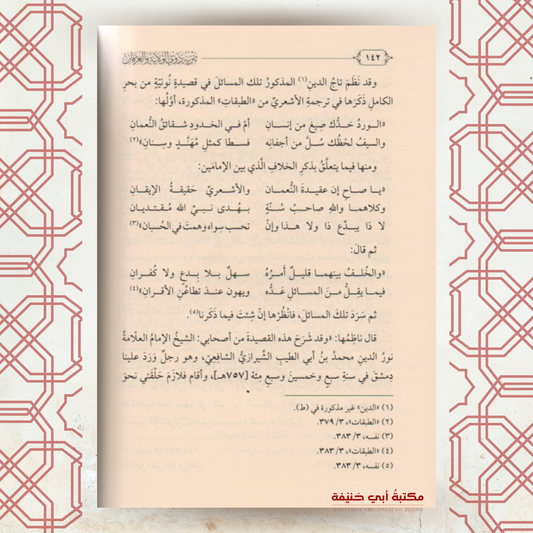 ١٤٢
وقد نَظَمَ تاجُ الدينِ(١) المذكورُ تلك المسائلَ في قصيدةٍ نُونيَّةٍ من بحرِ
الكاملِ ذَكَرَها في ترجمةِ الأشعريِّ من «الطبقاتِ» المذكورة، أوَّلُها:
«الوردُ خدُّك صِيغَ من إنسانِ أمْ في الخدودِ شقائقُ النُّعمانِ
والسيفُ لحْظُك سُلَّ من أجفانِهِ فسَطا كمثلِ مُهَنَّدٍ وسِنانِ»(٢)
ومنها فيما يتعلَّقُ بذكرِ الخلافِ الَّذي بين الإمامَينِ:
«يا صاحِ إن عقيدةَ النُّعمان والأشعريِّ حَقيقةُ الإيقانِ
وكلاهما واللهِ صاحبُ سُنَّةٍ بهُدى نبيِّ الله مُقتديانِ
لا ذا يبدِّع ذا ولا هذا وإنْ تحسب سِواه وهمتَ في الحُسبان»(٣)
ثم قالَ:
«والخُلفُ بينهما قليلٌ أمرُهُ سهلٌ بلا بِدعٍ ولا كُفرانِ
فيما يقِلُّ منَ المسائلِ عَدُّه ويهون عندَ تطاعُنِ الأقرانِ»(٤)
ثم سَرَدَ تلك المسائلَ، فانْظُرْها إنْ شِئتَ فيما ذَكَرنا(٥).
قال ناظِمُها: «وقد شَرَحَ هذه القصيدةَ من أصحابي: الشيخُ الإمامُ العلَّامةُ
نورُ الدينِ محمدُ بنُ أبي الطيبِ الشِّيرازيُّ الشافِعيّ، وهو رجلٌ وَرَدَ علينا
دِمشقَ في سنةِ سبعٍ وخمسينَ وسبعِ مئة [٧٥٧هـ]، وأقام فلازَمَ حَلْقَتي نحوَ
(١) «الدين» غير مذكورة في (ط).
(٢) «الطبقات»، ٣/ ٣٧٩.
(٣) نفسه، ٣/ ٣٨٣.
(٤) «الطبقات»، ٣/ ٣٨٣.
(٥) نفسه، ٣/ ٣٨٣.
مكتبةُ أبي حَنيْفة